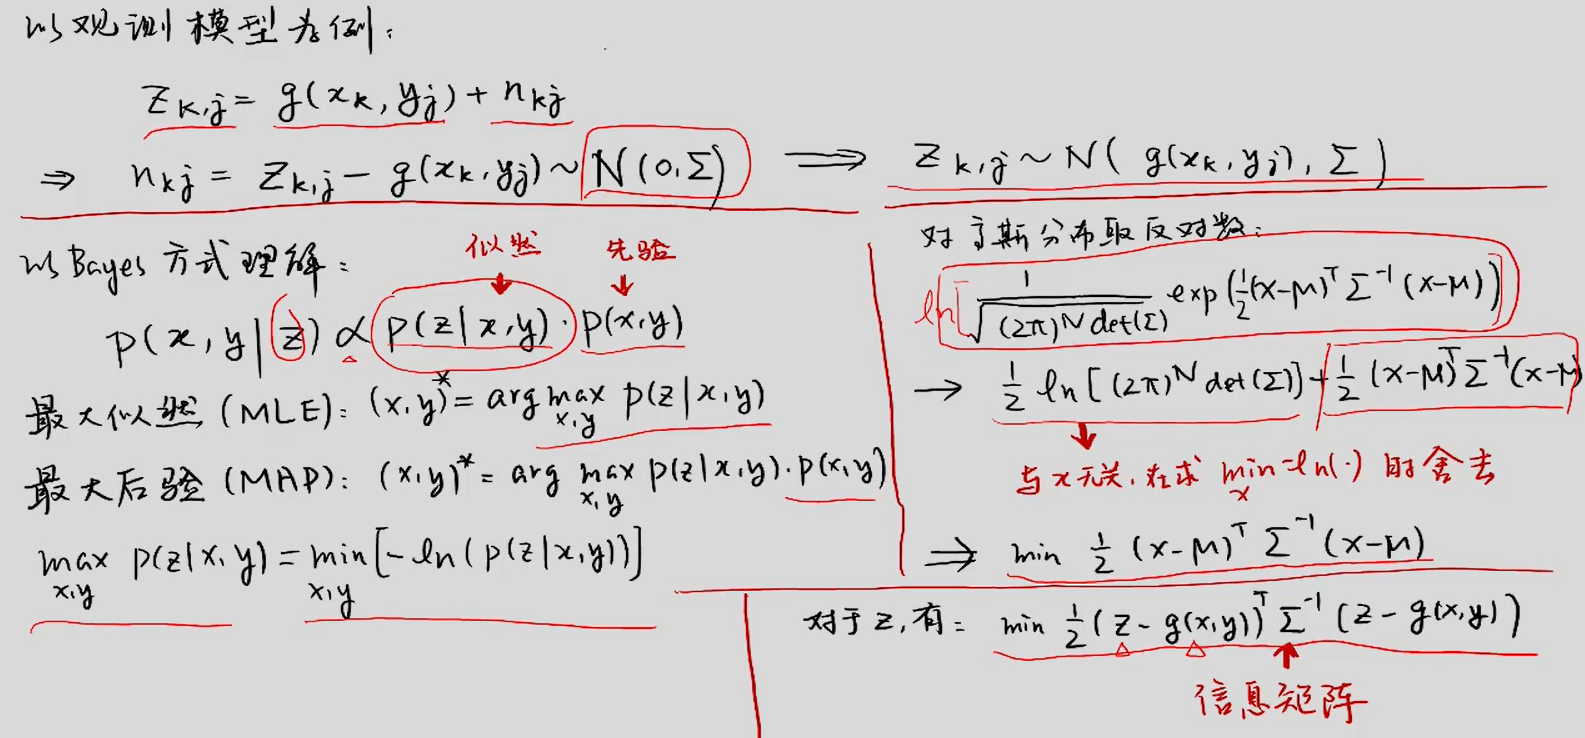 以观测模型为例:
z_{k,j} = g(x_k, y_j) + n_{kj}
⇒ n_{kj} = z_{k,j} - g(x_k, y_j) ~ N(0, Σ) ⟹ z_{k,j} ~ N( g(x_k, y_j), Σ )
以Bayes方式理解:
似然 先验
p(x, y|z) ∝ p(z|x,y)·p(x,y)
最大似然(MLE): (x,y)^* = arg max_{x,y} p(z|x,y)
最大后验(MAP): (x,y)^* = arg max_{x,y} p(z|x,y)·p(x,y)
max_{x,y} p(z|x,y) = min_{x,y} [-ln(p(z|x,y))]
对高斯分布取反对数:
ln[ 1/√((2π)^N det(Σ)) exp(½(x-μ)^T Σ^{-1} (x-μ))
→ ½ ln[(2π)^N det(Σ)] + ½ (x-μ)^T Σ^{-1} (x-μ)
与x无关,在求 min_x -ln(·) 时舍去
⟹ min ½ (x-μ)^T Σ^{-1} (x-μ)
对于z,有: min ½ (z - g(x,y))^T Σ^{-1} (z - g(x,y))
信息矩阵